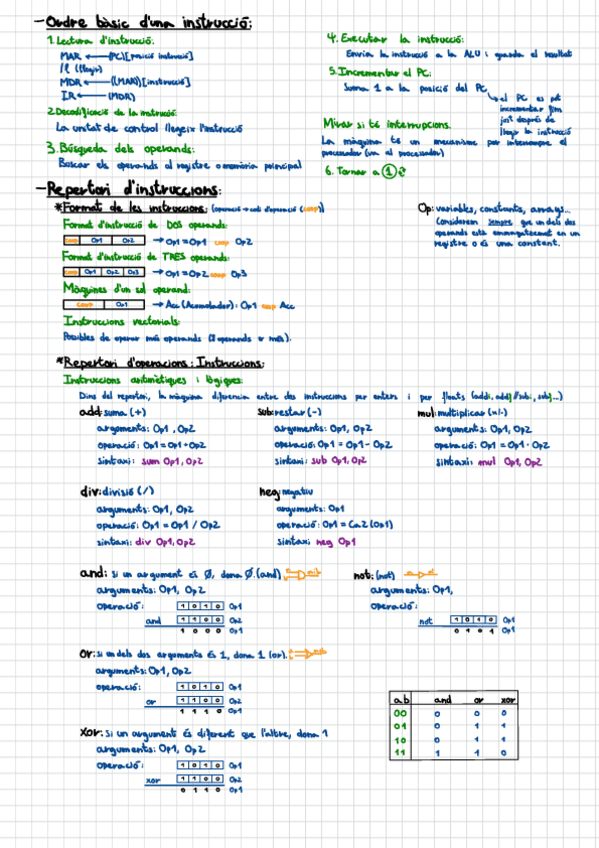 - Ordre bàsic d'una instrucció:
1. Lectura d'instrucció:
MAR ← (PC)[posició instrucció]
IR (llegir)
MDR ← ((MAR))[instrucció]
IR ← (MDR)
2. Decodificació de la instrucció:
La unitat de control llegeix l'instrucció
3. Búsqueda dels operands:
Buscar els operands al registre o memòria principal
4. Executar la instrucció:
Envia la instrucció a la ALU i guarda el resultat
5. Incrementar el PC:
Suma 1 a la posició del PC
el PC es pot
incrementar fins
just després de
llegir la instrucció
Mirar si té interrupcions.
La màquina té un mecanisme per interrompre el
processador (va al processador)
6. Tornar a 1
- Repertori d'instruccions:
*Format de les instruccions: (operació → codi d'operació (coop))
Format d'instrucció de DOS operands:
coop Op1 Op2 → Op1 = Op1 coop Op2
Format d'instrucció de TRES operands:
coop Op1 Op2 Op3 → Op1 = Op2 coop Op3
Màquines d'un sol operand:
coop Op1 → Acc (Acumulador): Op1 coop Acc
Instruccions vectorials:
Possibles de operar més operands (3 operands o més).
Op: variables, constants, arrays...
Considerem sempre que un dels dos
operands està emmagatzemat en un
registre o és una constant.
*Repertori d'operacions: Instruccions:
Instruccions aritmètiques i lògiques:
Dins del repertori, la màquina diferencia entre dos instruccions per enters i per floats (addi, addf // subi, subf...)
add: suma (+)
arguments: Op1, Op2
operació: Op1 = Op1 + Op2
sintaxi: sum Op1, Op2
sub: restar (-)
arguments: Op1, Op2
operació: Op1 = Op1 - Op2
sintaxi: sub Op1, Op2
mul: multiplicar (x/·)
arguments: Op1, Op2
operació: Op1 = Op1 · Op2
sintaxi: mul Op1, Op2
div: divisió (/)
arguments: Op1, Op2
operació: Op1 = Op1 / Op2
sintaxi: div Op1, Op2
neg: negatiu
arguments: Op1
operació: Op1 = Ca2 (Op1)
sintaxi: neg Op1
and: si un argument és Ø, dona Ø. (and)
arguments: Op1, Op2
operació: 1 0 1 0 Op1
and 1 1 0 0 Op2
1 0 0 0 Op1
not: (not)
arguments: Op1,
operació:
not 1 0 1 0 Op1
0 1 0 1 Op1
or: si un dels dos arguments és 1, dona 1 (or).
arguments: Op1, Op2
operació: 1 0 1 0 Op1
or 1 1 0 0 Op2
1 1 1 0 Op1
xor: si un argument és diferent que l'altre, dona 1
arguments: Op1, Op2
operació: 1 0 1 0 Op1
xor 1 1 0 0 Op2
0 1 1 0 Op1
a b and or xor
00 0 0 0
01 0 1 1
10 0 1 1
11 1 1 0